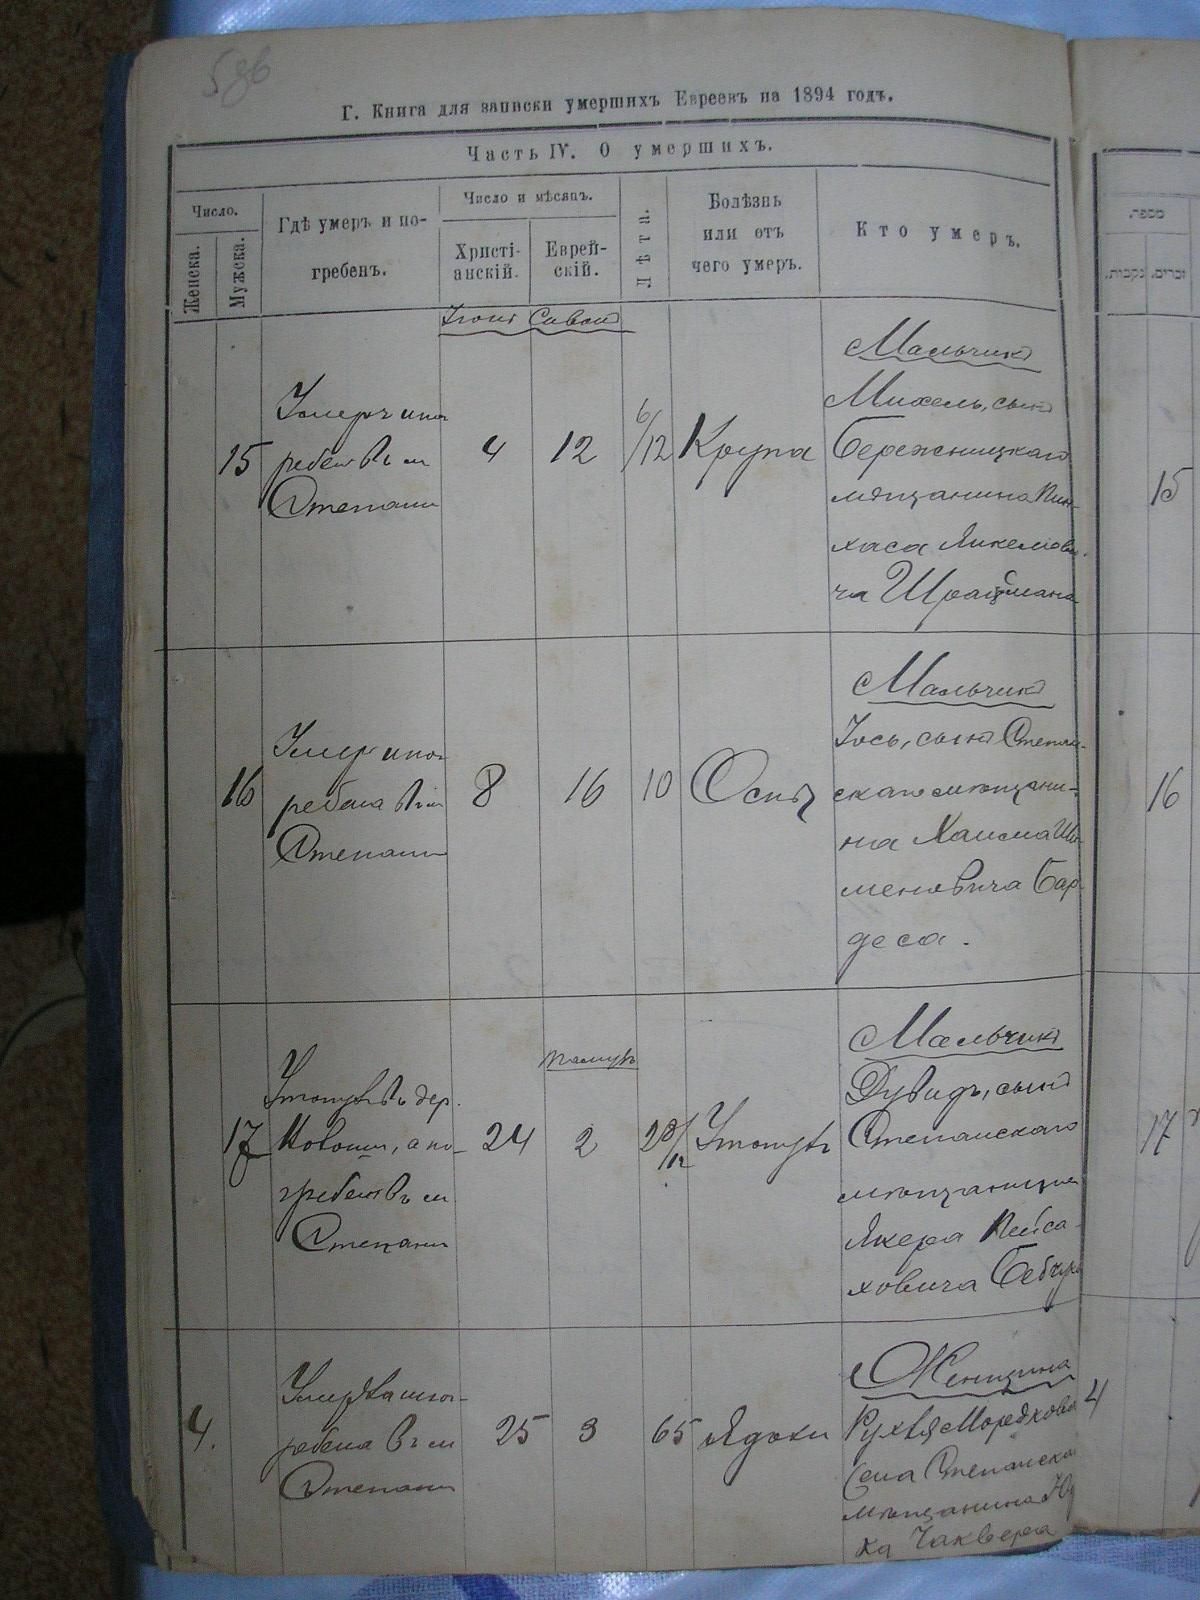 Г. Книга для записки умершихъ Евреевъ на 1894 годъ.
Часть IV. О умершихъ.
Число.
Женска.
Мужска.
Гдѣ умеръ и по-
гребенъ.
Число и мѣсяцъ.
Христі-
анскій.
Еврей-
скій.
Лѣта.
Болѣзнь
или отъ
чего умеръ.
Кто умеръ.
Іюнь Сиванъ
15
Умеръ и пог
ребенъ въ м
Степани
4
12
6/12
Крупа
Мальчикъ
Михель, сынъ
Бережницкаго
мѣщанина Пин-
хаса Янкелеви-
ча
16
Умеръ и пог
ребена въ м
Степани
8
16
10
Оспы
Мальчикъ
Іось, сынъ Степан-
скаго мѣщани-
на Хаима
меновича Бар-
деса.
Тамузъ
17
Утонулъ въ дер.
а по-
гребенъ въ м
Степани
24
2
Мальчикъ
Дувидъ, сынъ
Степанскаго
мѣщанина
Пейса-
ховича
4.
Умерла и пог-
ребена въ м
Степани
25
3
65
Женщина
Рухля Мордхова
Степанска
мѣщанина
מספר.
נקבות.
זכרים.
15
16
17
4